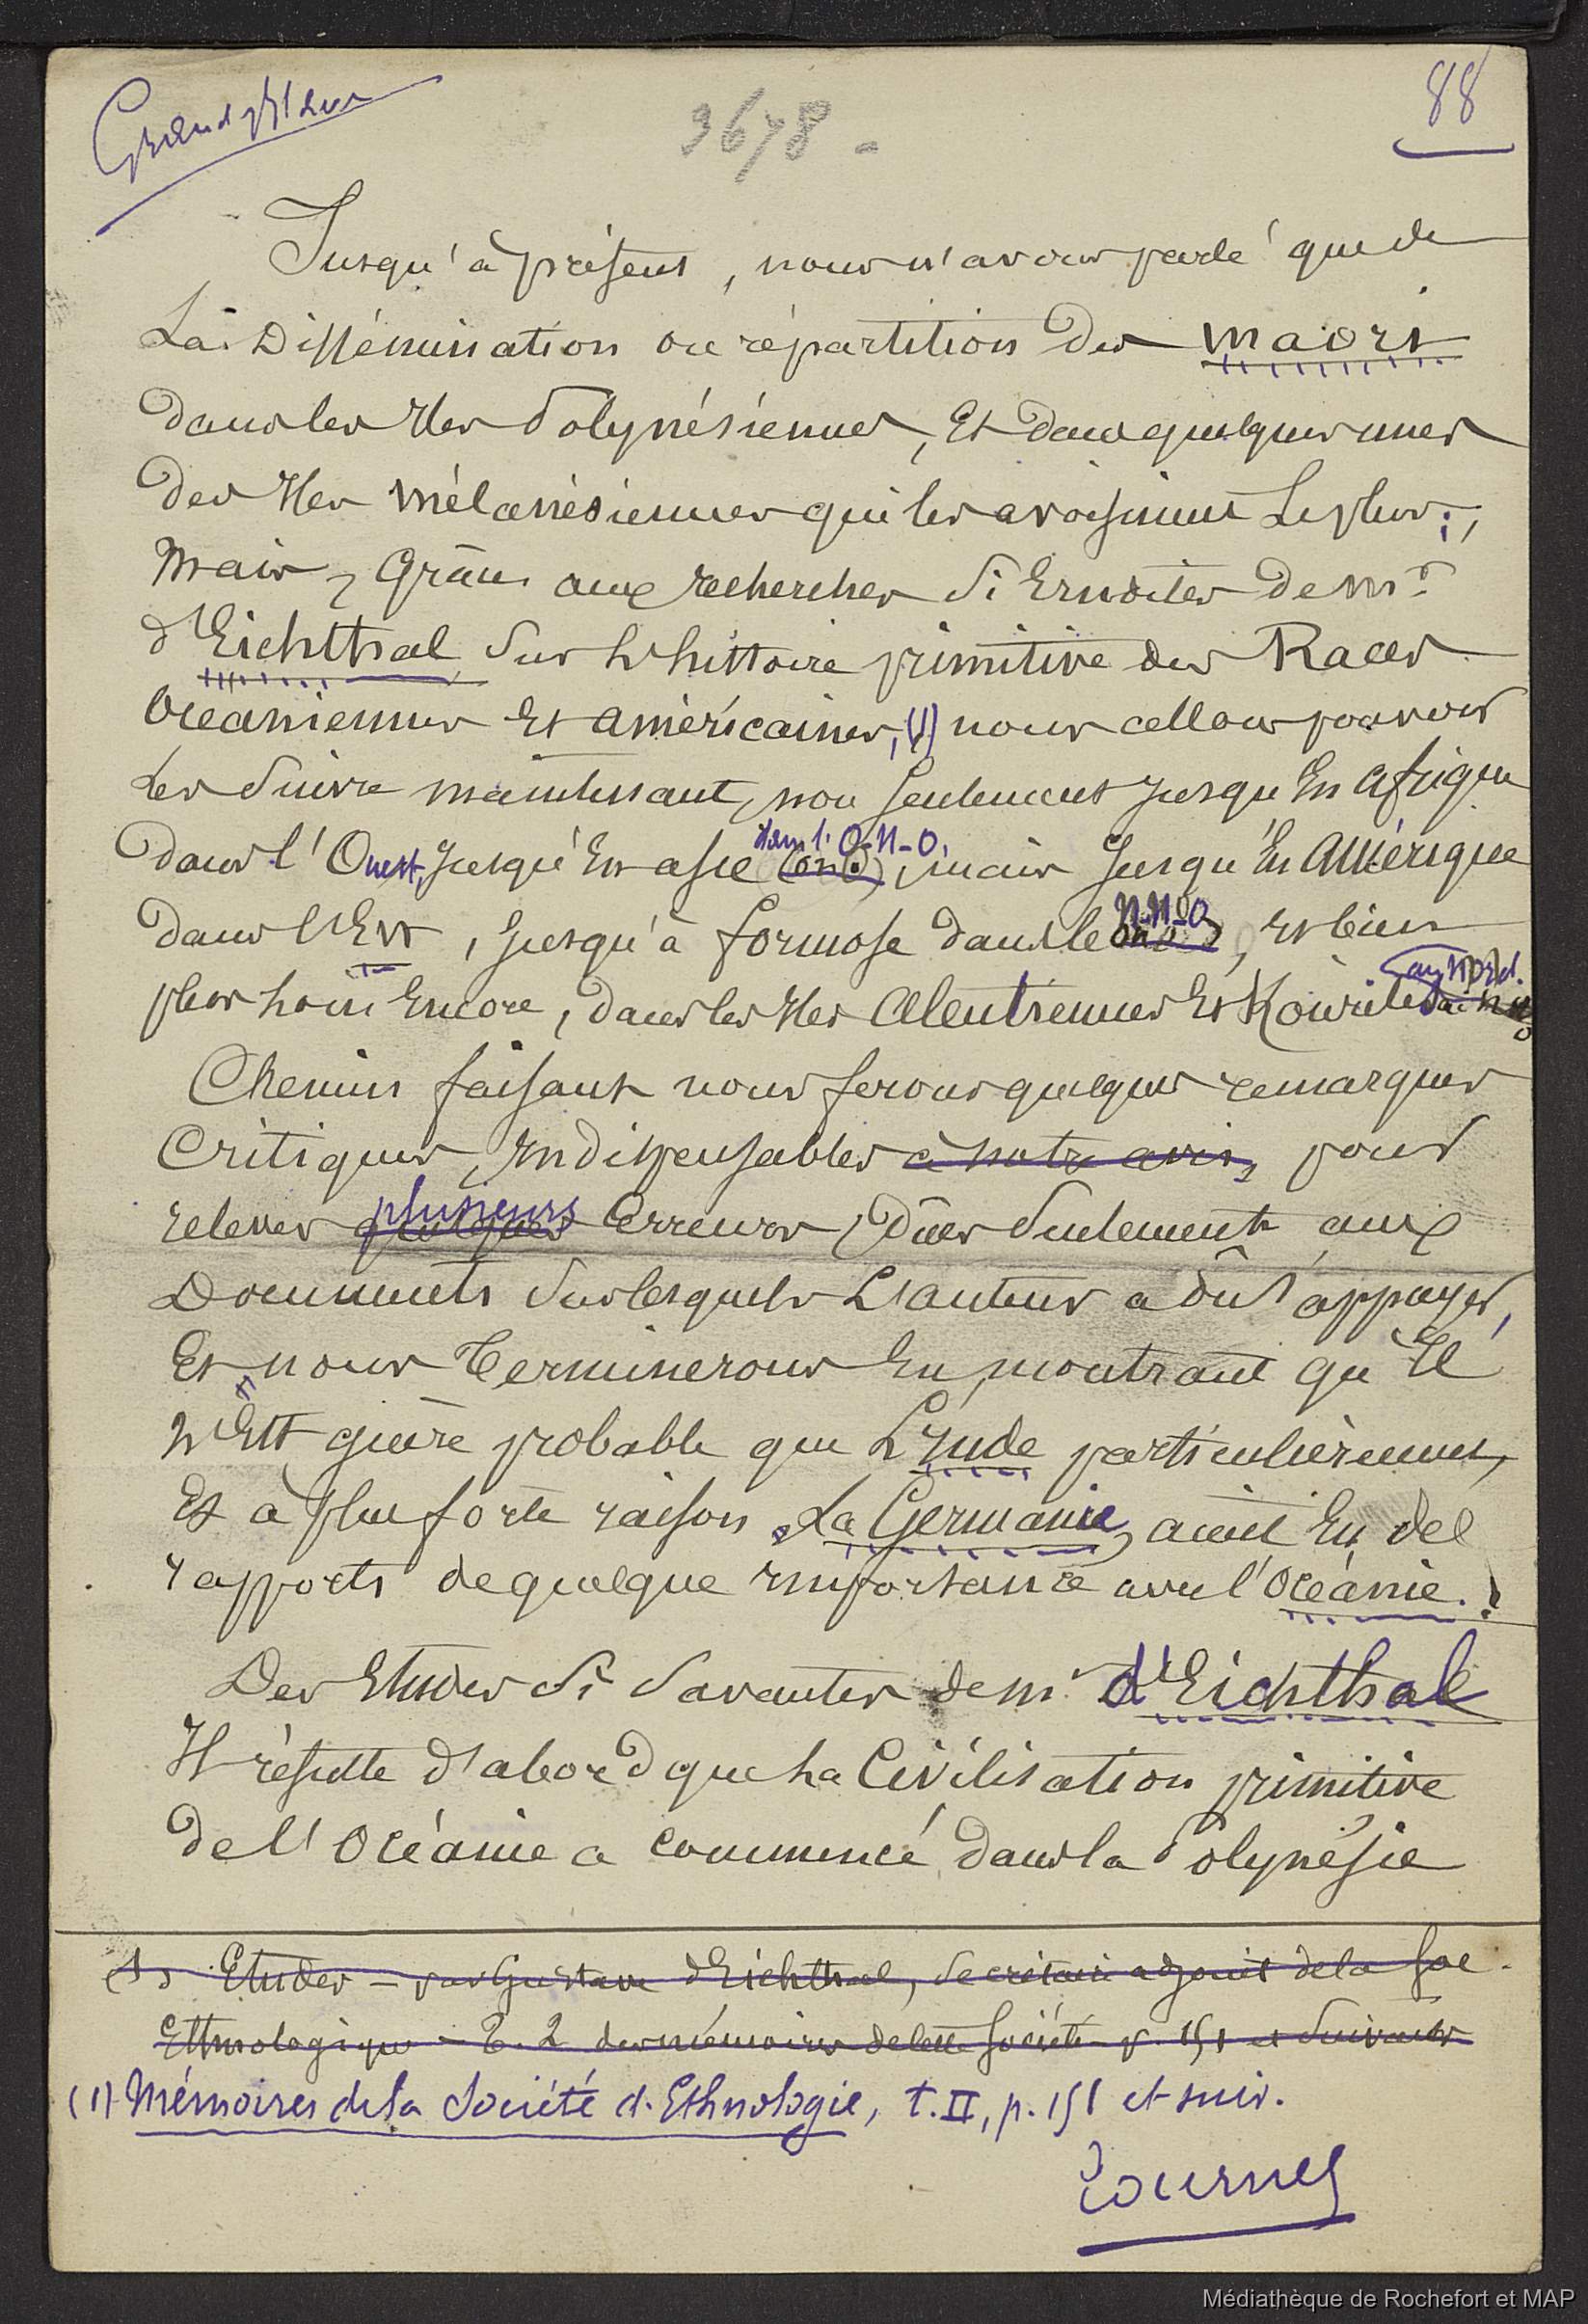 88
3678 -
Jusqu'à présent, nous n'avons parlé que de
La Dissémination ou répartition des maoris
dans les Iles Polynésiennes, Et dans quelques unes
des Iles mélanésiennes qui les avoisinent Le plus;
Mais, Grâce aux recherches si Erudites de Mr
d'Eichthal sur L'histoire primitive des Races
Océaniennes Et américaines, (1) nous allons pouvoir
Les suivre maintenant, non seulement jusqu'En afrique
dans l'Ouest, jusqu'En asie dans l'O-N-O, mais jusqu'En amérique
dans l'Est, jusqu'à formose dans le N-N-O, et bien
plus loin Encore, dans les Iles aleutiennes Et Kouriles au Nord.
Chemin faisant nous ferons quelques remarques
Critiques, Indispensables à notre avis, pour
relever plusieurs Erreurs, Dûes seulement aux
Documents sur lesquels L'auteur a dû s'appuyer,
Et nous Terminerons En montrant qu'Il
n'Est guère probable que L'Inde particulièrement,
Et à plus forte raison La Germanie, aient Eu des
rapports de quelque Importance avec l'Océanie.
Des Etudes si savantes de Mr d'Eichthal
Il résulte d'abord que La Civilisation primitive
de l'Océanie a commencé dans la Polynésie
(1) Etudes — par Gustave d'Eichthal, Secrétaire adjoint de la Soc.
Ethnologique — T. 2 des mémoires de cette Société p. 151 et suivantes
(1) Mémoires de la Société d'Ethnologie, t. II, p. 151 et suiv.
Tournez
Médiathèque de Rochefort et MAP